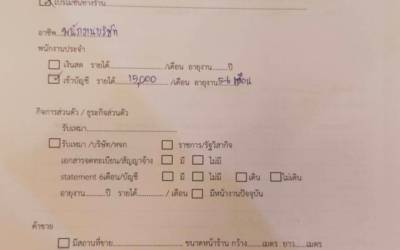 ☑ โปรโมชั่นทางร้าน
อาชีพ พนักงานบริษัท
พนักงานประจำ
☐ เงินสด รายได้............/เดือน อายุงาน......ปี
☑ เข้าบัญชี รายได้ 15,000 /เดือน อายุงาน 5-6 เดือน
กิจการส่วนตัว / ธุระกิจส่วนตัว
รับเหมา........................
☐ รับเหมา /บริษัท/หจก ☐ ราชการ/รัฐวิสากิจ
เอกสารจดทะเบียน/สัญญาจ้าง ☐ มี ☐ ไม่มี
statement 6เดือน/บัญชี ☐ มี ☐ ไม่มี ☐ เดิน ☐ ไม่เดิน
อายุงาน.......ปี รายได้........./ เดือน ☐ มีหน้างานปัจจุบัน
ค้าขาย
☐ มีสถานที่ขาย.............. ขนาดหน้าร้าน กว้าง......เมตร ยาว......เมตร